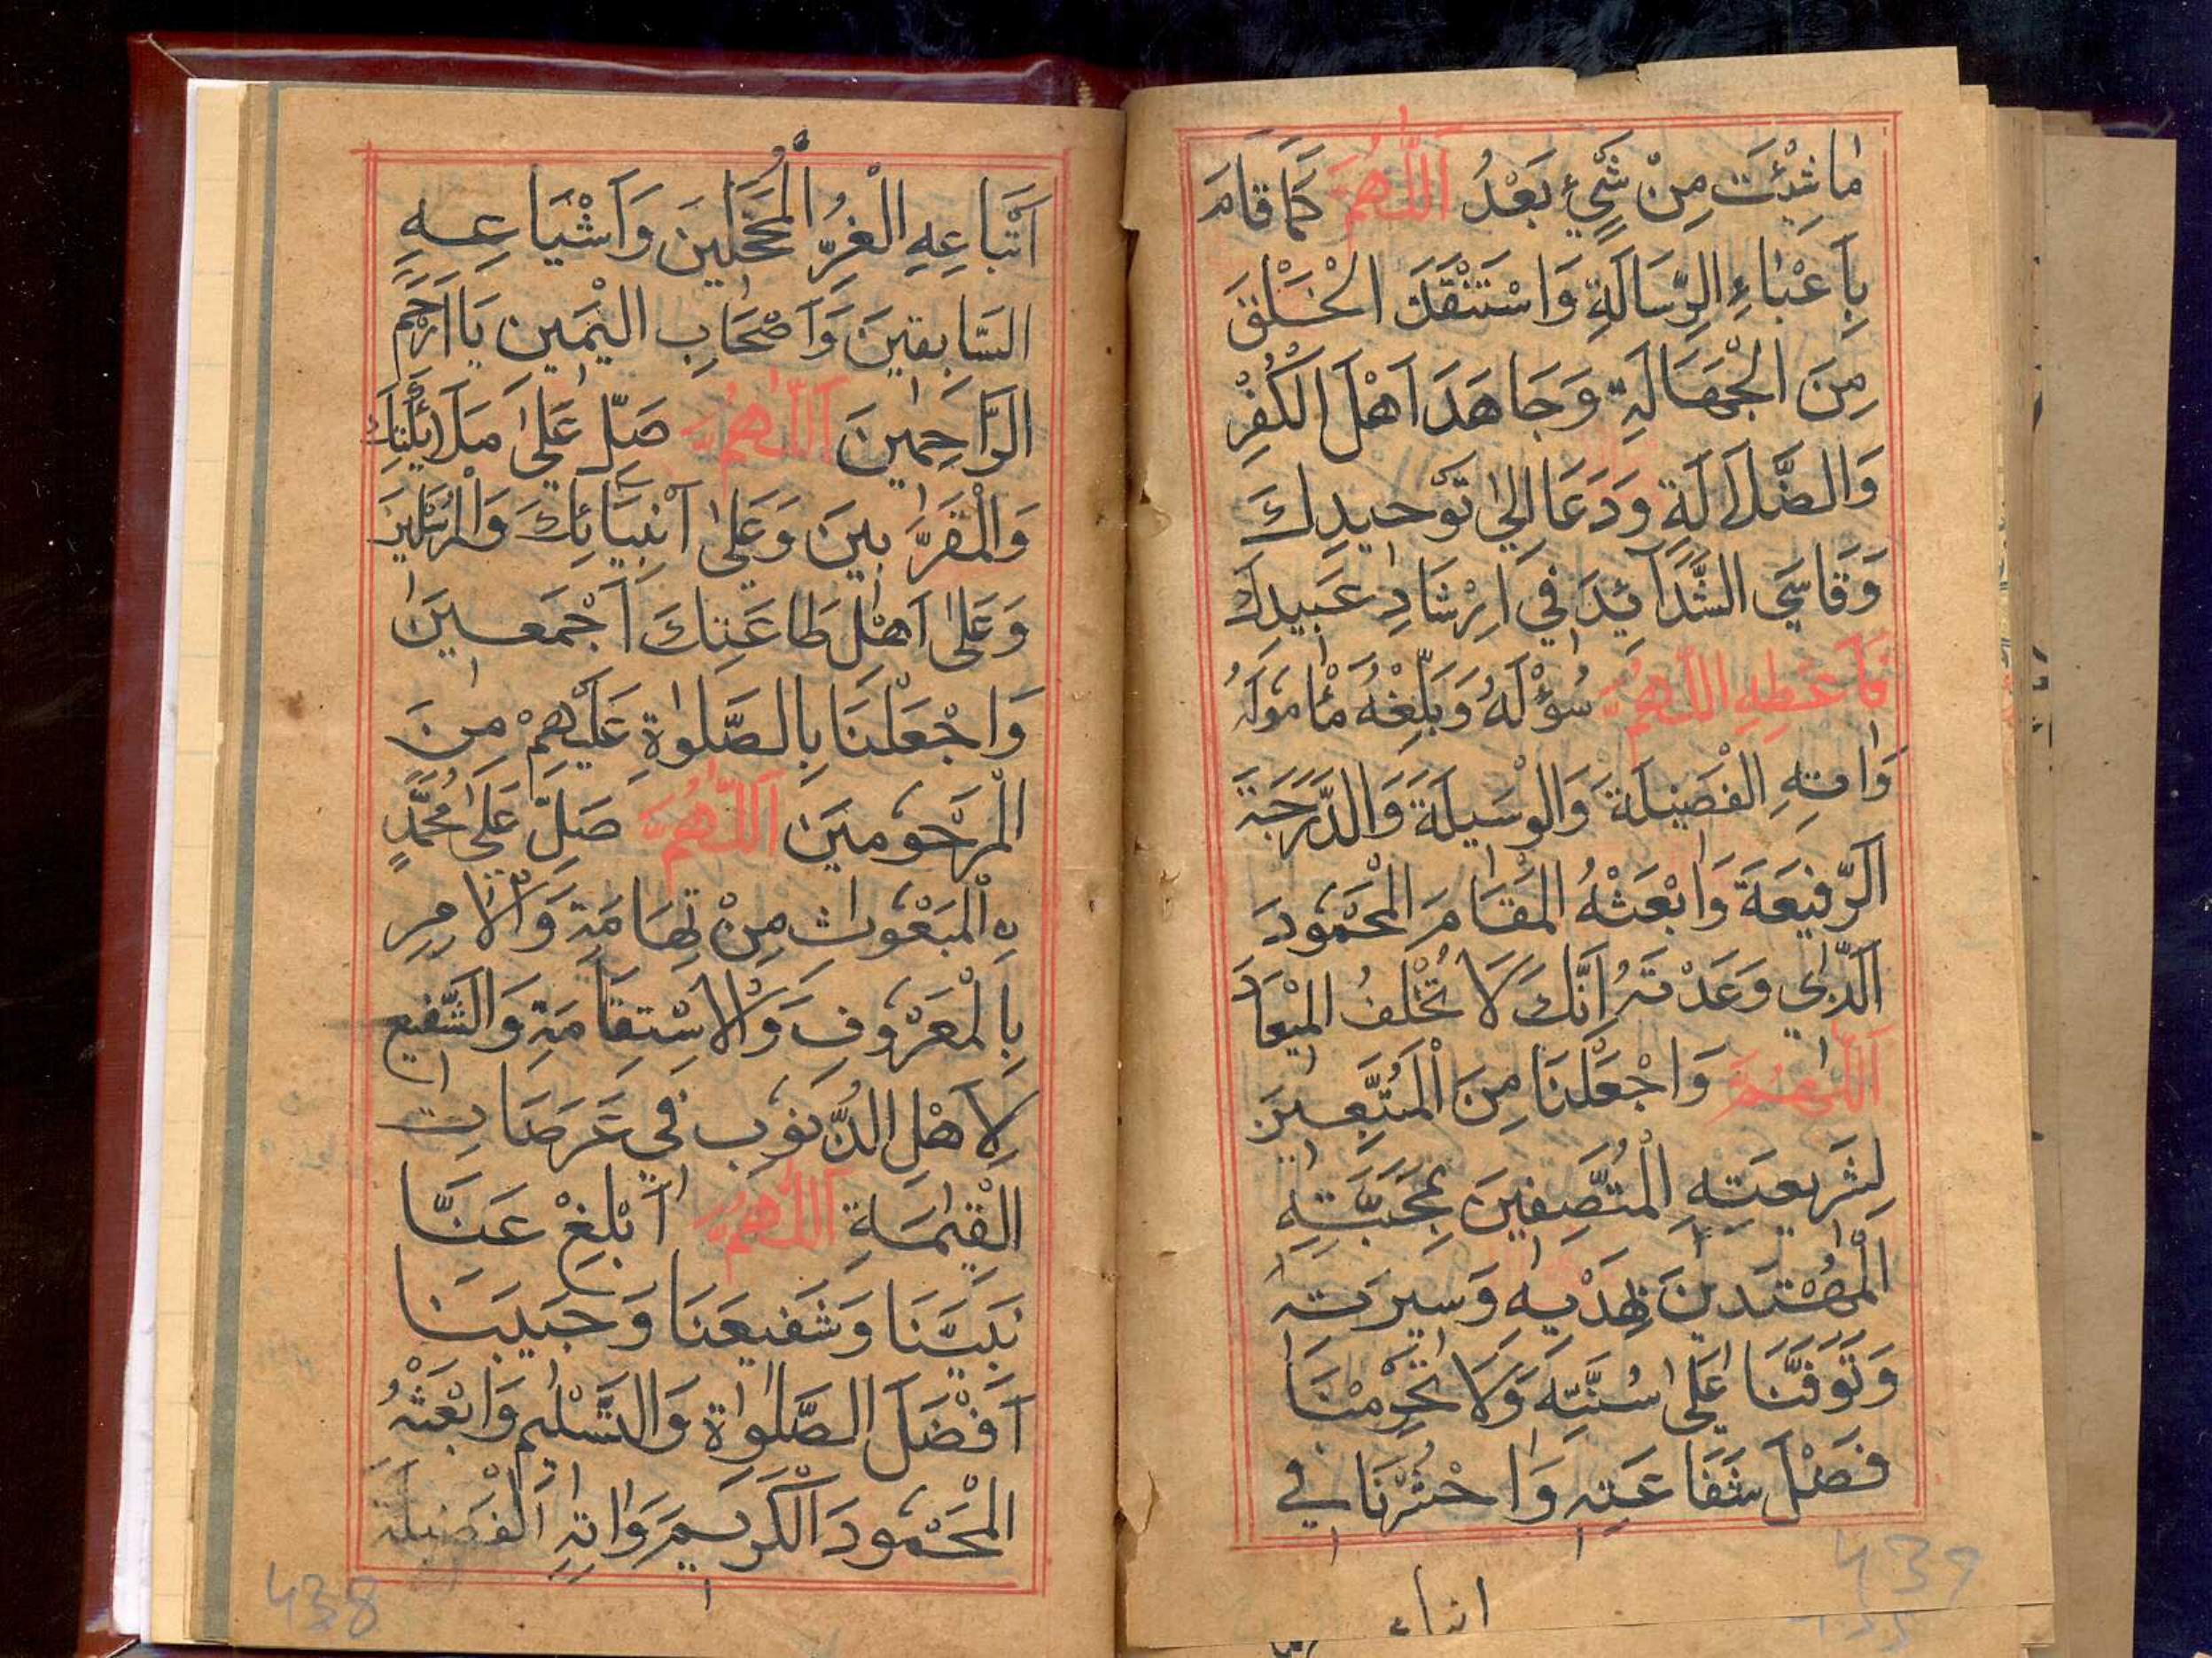 مَا شِئْتَ مِنْ شَيْءٍ بَعْدُ اَللّٰهُمَّ كَمَا قَامَ
بِاَعْبَاءِ الرِّسَالَةِ وَاسْتَنْقَذَ الْخَلْقَ
مِنَ الْجَهَالَةِ وَجَاهَدَ اَهْلَ الْكُفْرِ
وَالضَّلَالَةِ وَدَعَا اِلٰى تَوْحِيدِكَ
وَقَاسَي الشَّدَآئِدَ فِي اِرْشَادِ عَبِيدِكَ
فَاَعْطِهِ اللّٰهُمَّ سُؤْلَهُ وَبَلِّغْهُ مَأْمُولَهُ
وَاٰتِهِ الْفَضِيلَةَ وَالْوَسِيلَةَ وَالدَّرَجَةَ
الرَّفِيعَةَ وَابْعَثْهُ الْمَقَامَ الْمَحْمُودَ
الَّذِي وَعَدْتَهُ اِنَّكَ لَا تُخْلِفُ الْمِيْعَادَ
اَللّٰهُمَّ وَاجْعَلْنَا مِنَ الْمُتَّبِعِينَ
لِشَرِيعَتِهِ الْمُتَّصِفِينَ بِمَحَبَّتِهِ
الْمُهْتَدِينَ بِهَدْيِهِ وَسِيرَتِهِ
وَتَوَفَّنَا عَلٰى سُنَّتِهِ وَلَا تَحْرِمْنَا
فَضْلَ شَفَاعَتِهِ وَاحْشُرْنَا فِي
439
اَتْبَاعِهِ الْغُرِّ الْمُحَجَّلِينَ وَاَشْيَاعِهِ
السَّابِقِينَ وَاَصْحَابِ الْيَمِينِ يَا اَرْحَمَ
الرَّاحِمِينَ اَللّٰهُمَّ صَلِّ عَلٰى مَلَائِكَتِكَ
وَالْمُقَرَّبِينَ وَعَلٰى اَنْبِيَائِكَ وَالْمُرْسَلِينَ
وَعَلٰى اَهْلِ طَاعَتِكَ اَجْمَعِينَ
وَاجْعَلْنَا بِالصَّلٰوةِ عَلَيْهِمْ مِنَ
الْمَرْحُومِينَ اَللّٰهُمَّ صَلِّ عَلٰى مُحَمَّدٍ
نِ الْمَبْعُوثِ مِنْ تِهَامَةَ وَالْاٰمِرِ
بِالْمَعْرُوفِ وَالْاِسْتِقَامَةِ وَالشَّفِيعِ
لِاَهْلِ الذُّنُوبِ فِي عَرَصَاتِ
الْقِيٰمَةِ اَللّٰهُمَّ اَبْلِغْ عَنَّا
نَبِيَّنَا وَشَفِيعَنَا وَحَبِيبَنَا
اَفْضَلَ الصَّلٰوةِ وَالتَّسْلِيمِ وَابْعَثْهُ
الْمَحْمُودَ الْكَرِيمَ وَاٰتِهِ الْفَضِيلَةَ
438